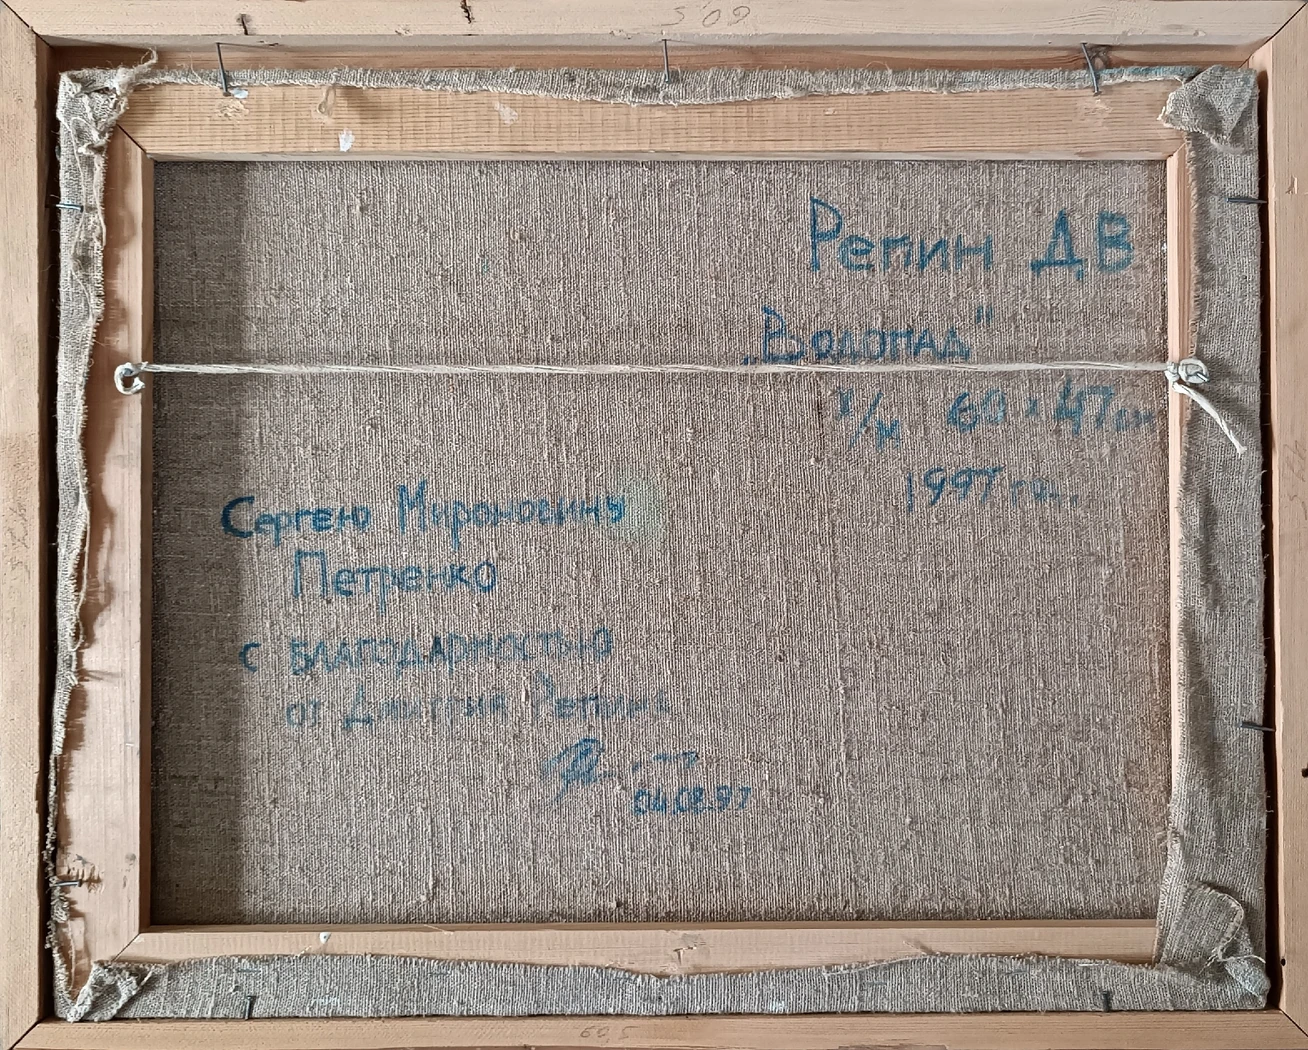 60,5
Репин ДВ
„Водопад"
х/м 60 х 47 см
1997
Сергею Мироновичу
Петренко
с благодарностью
от Дмитрия Репина
04.08.97
60,5